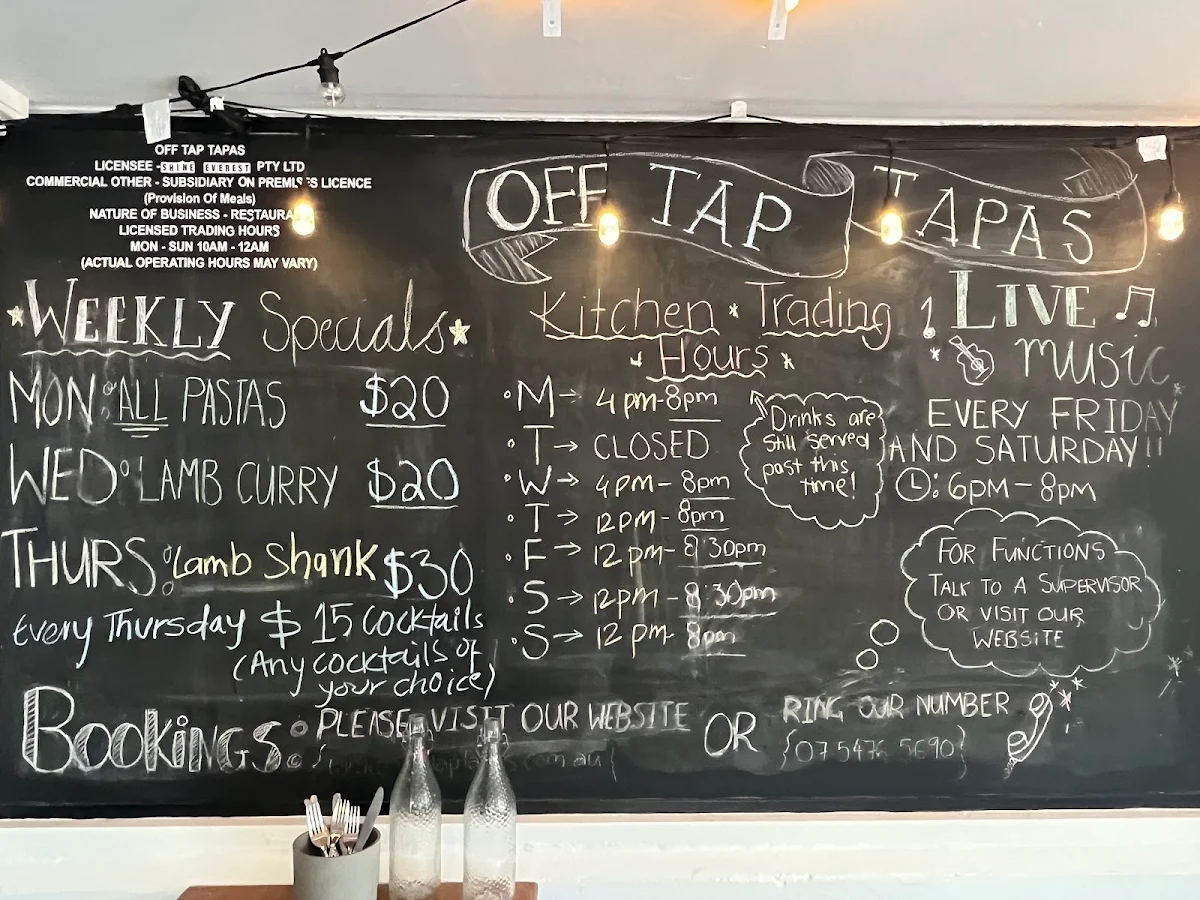 OFF TAP TAPAS
LICENSEE - SHINE EVEREST PTY LTD
COMMERCIAL OTHER - SUBSIDIARY ON PREMISES LICENCE
(Provision Of Meals)
NATURE OF BUSINESS - RESTAURA
LICENSED TRADING HOURS
MON - SUN 10AM - 12AM
(ACTUAL OPERATING HOURS MAY VARY)
OFF TAP TAPAS
WEEKLY Specials
MON: ALL PASTAS $20
WED: LAMB CURRY $20
THURS: Lamb Shank $30
Every Thursday $15 cocktails
(Any cocktails of
your choice)
Kitchen Trading
Hours
M→ 4pm-8pm
T→ CLOSED
W→ 4pm-8pm
T→ 12pm-8pm
F→ 12pm-8:30pm
S→ 12pm-8:30pm
S→ 12pm-8pm
Drinks are
still served
past this
time!
LIVE
MUSIC
EVERY FRIDAY
AND SATURDAY!!
: 6PM-8pm
FOR FUNCTIONS
TALK TO A SUPERVISOR
OR VISIT OUR
WEBSITE
BOOKINGS: PLEASE VISIT OUR WEBSITE
.com.au}
OR
RING OUR NUMBER
{07 5476 5690}